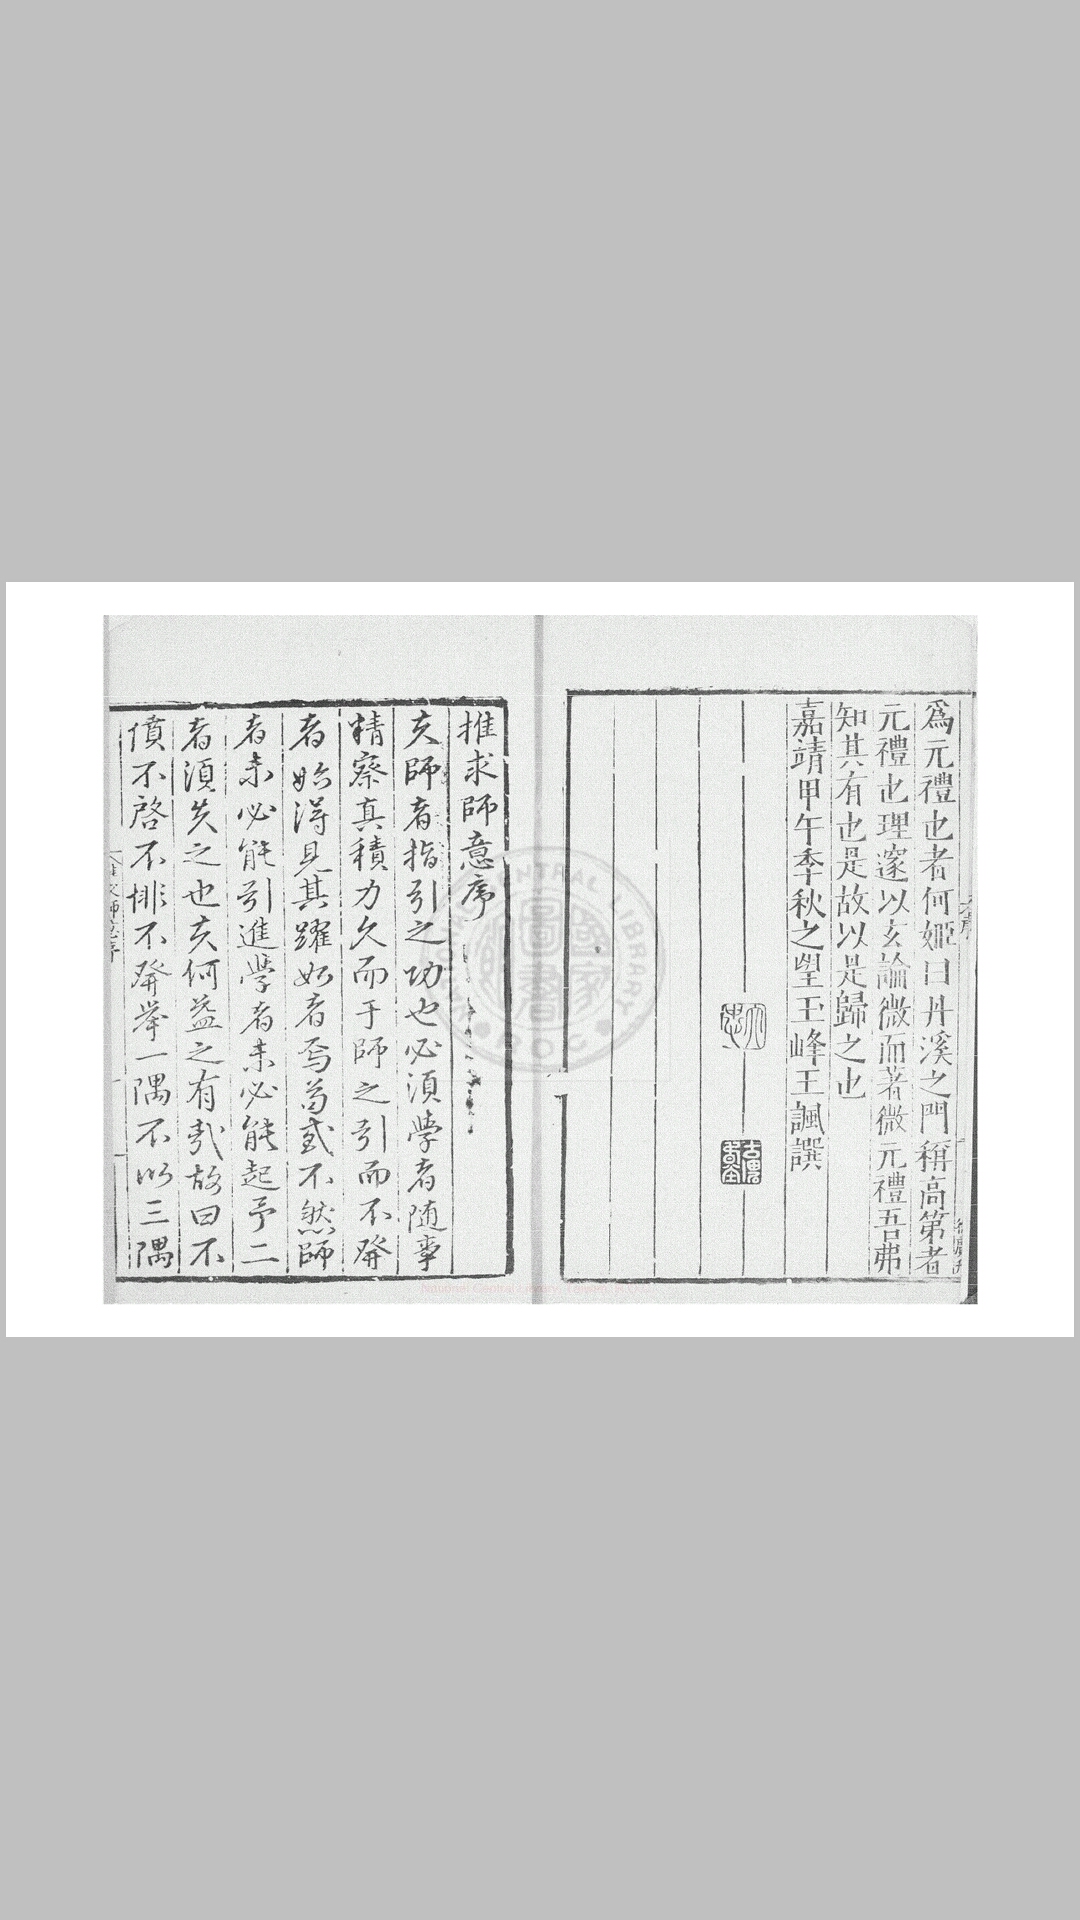 爲元禮也者何姬曰丹溪之門稱高第者
元禮也理邃以玄論微而著微元禮吾弗
知其有也是故以是歸之也
嘉靖甲午季秋之望玉峰王諷譔
推求師意序
夫師者指引之功也必須學者隨事
精察真積力久而于師之引而不發
者始得見其躍如者焉苟或不然師
者未必能引進學者未必能起予二
者須失之也夫何益之有哉故曰不
憤不啓不悱不發舉一隅不以三隅
NATIONAL CENTRAL LIBRARY
ROC
國家圖書館
National Central Library, Taiwan, R.O.C